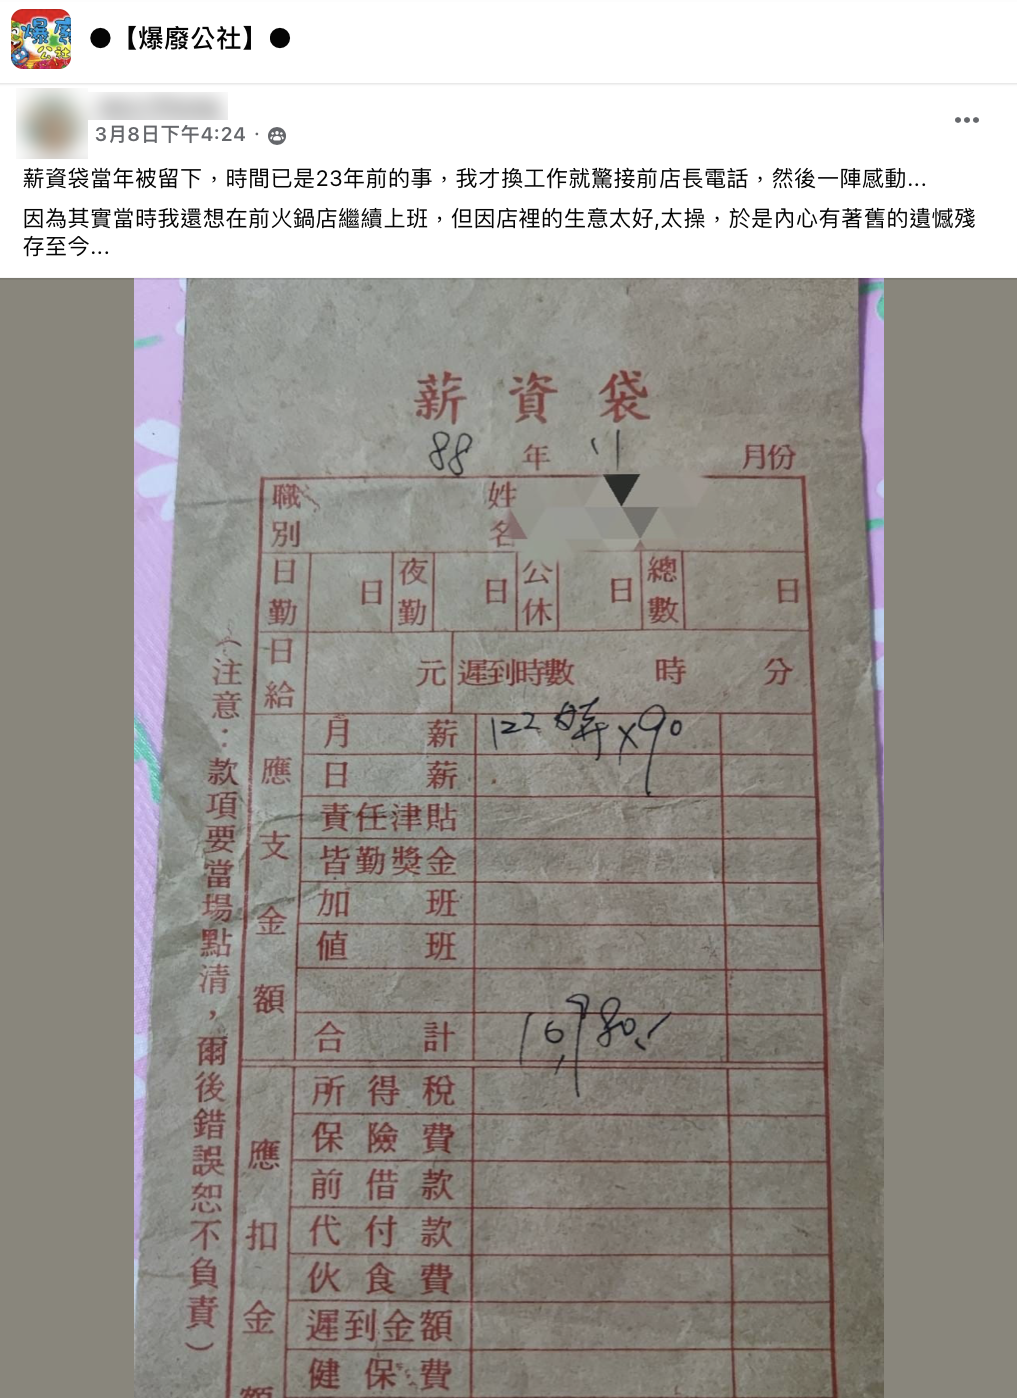 ●【爆廢公社】●
3月8日下午4:24
薪資袋當年被留下，時間已是23年前的事，我才換工作就驚接前店長電話，然後一陣感動...
因為其實當時我還想在前火鍋店繼續上班，但因店裡的生意太好,太操，於是內心有著舊的遺憾殘
存至今...
薪資袋
88 年 11 月份
職別 姓名
日勤 日 夜勤 日 公休 日 總數 日
日給 元 遲到時數 時 分
應支金額
月薪 122時 x90
日薪
責任津貼
皆勤獎金
加班
値班
合計
應扣金額
所得稅
保險費
前借款
代付款
伙食費
遲到金額
健保費
（注意：款項要當場點清，爾後錯誤恕不負責）